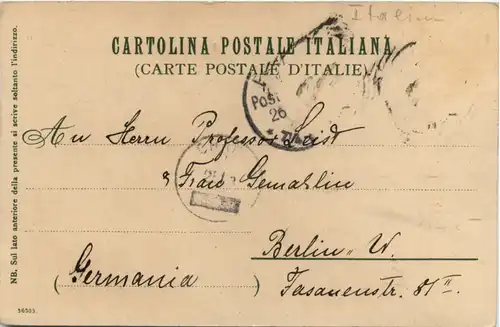 Italien
CARTOLINA POSTALE ITALIANA
(CARTE POSTALE D'ITALIE)
Post
26
An Herrn Professor Leist
& Frau Gemahlin
Berlin W.
(Germania)
Fasanenstr. 81 II
NB. Sul lato anteriore della presente si scrive soltanto l'indirizzo.
56303.